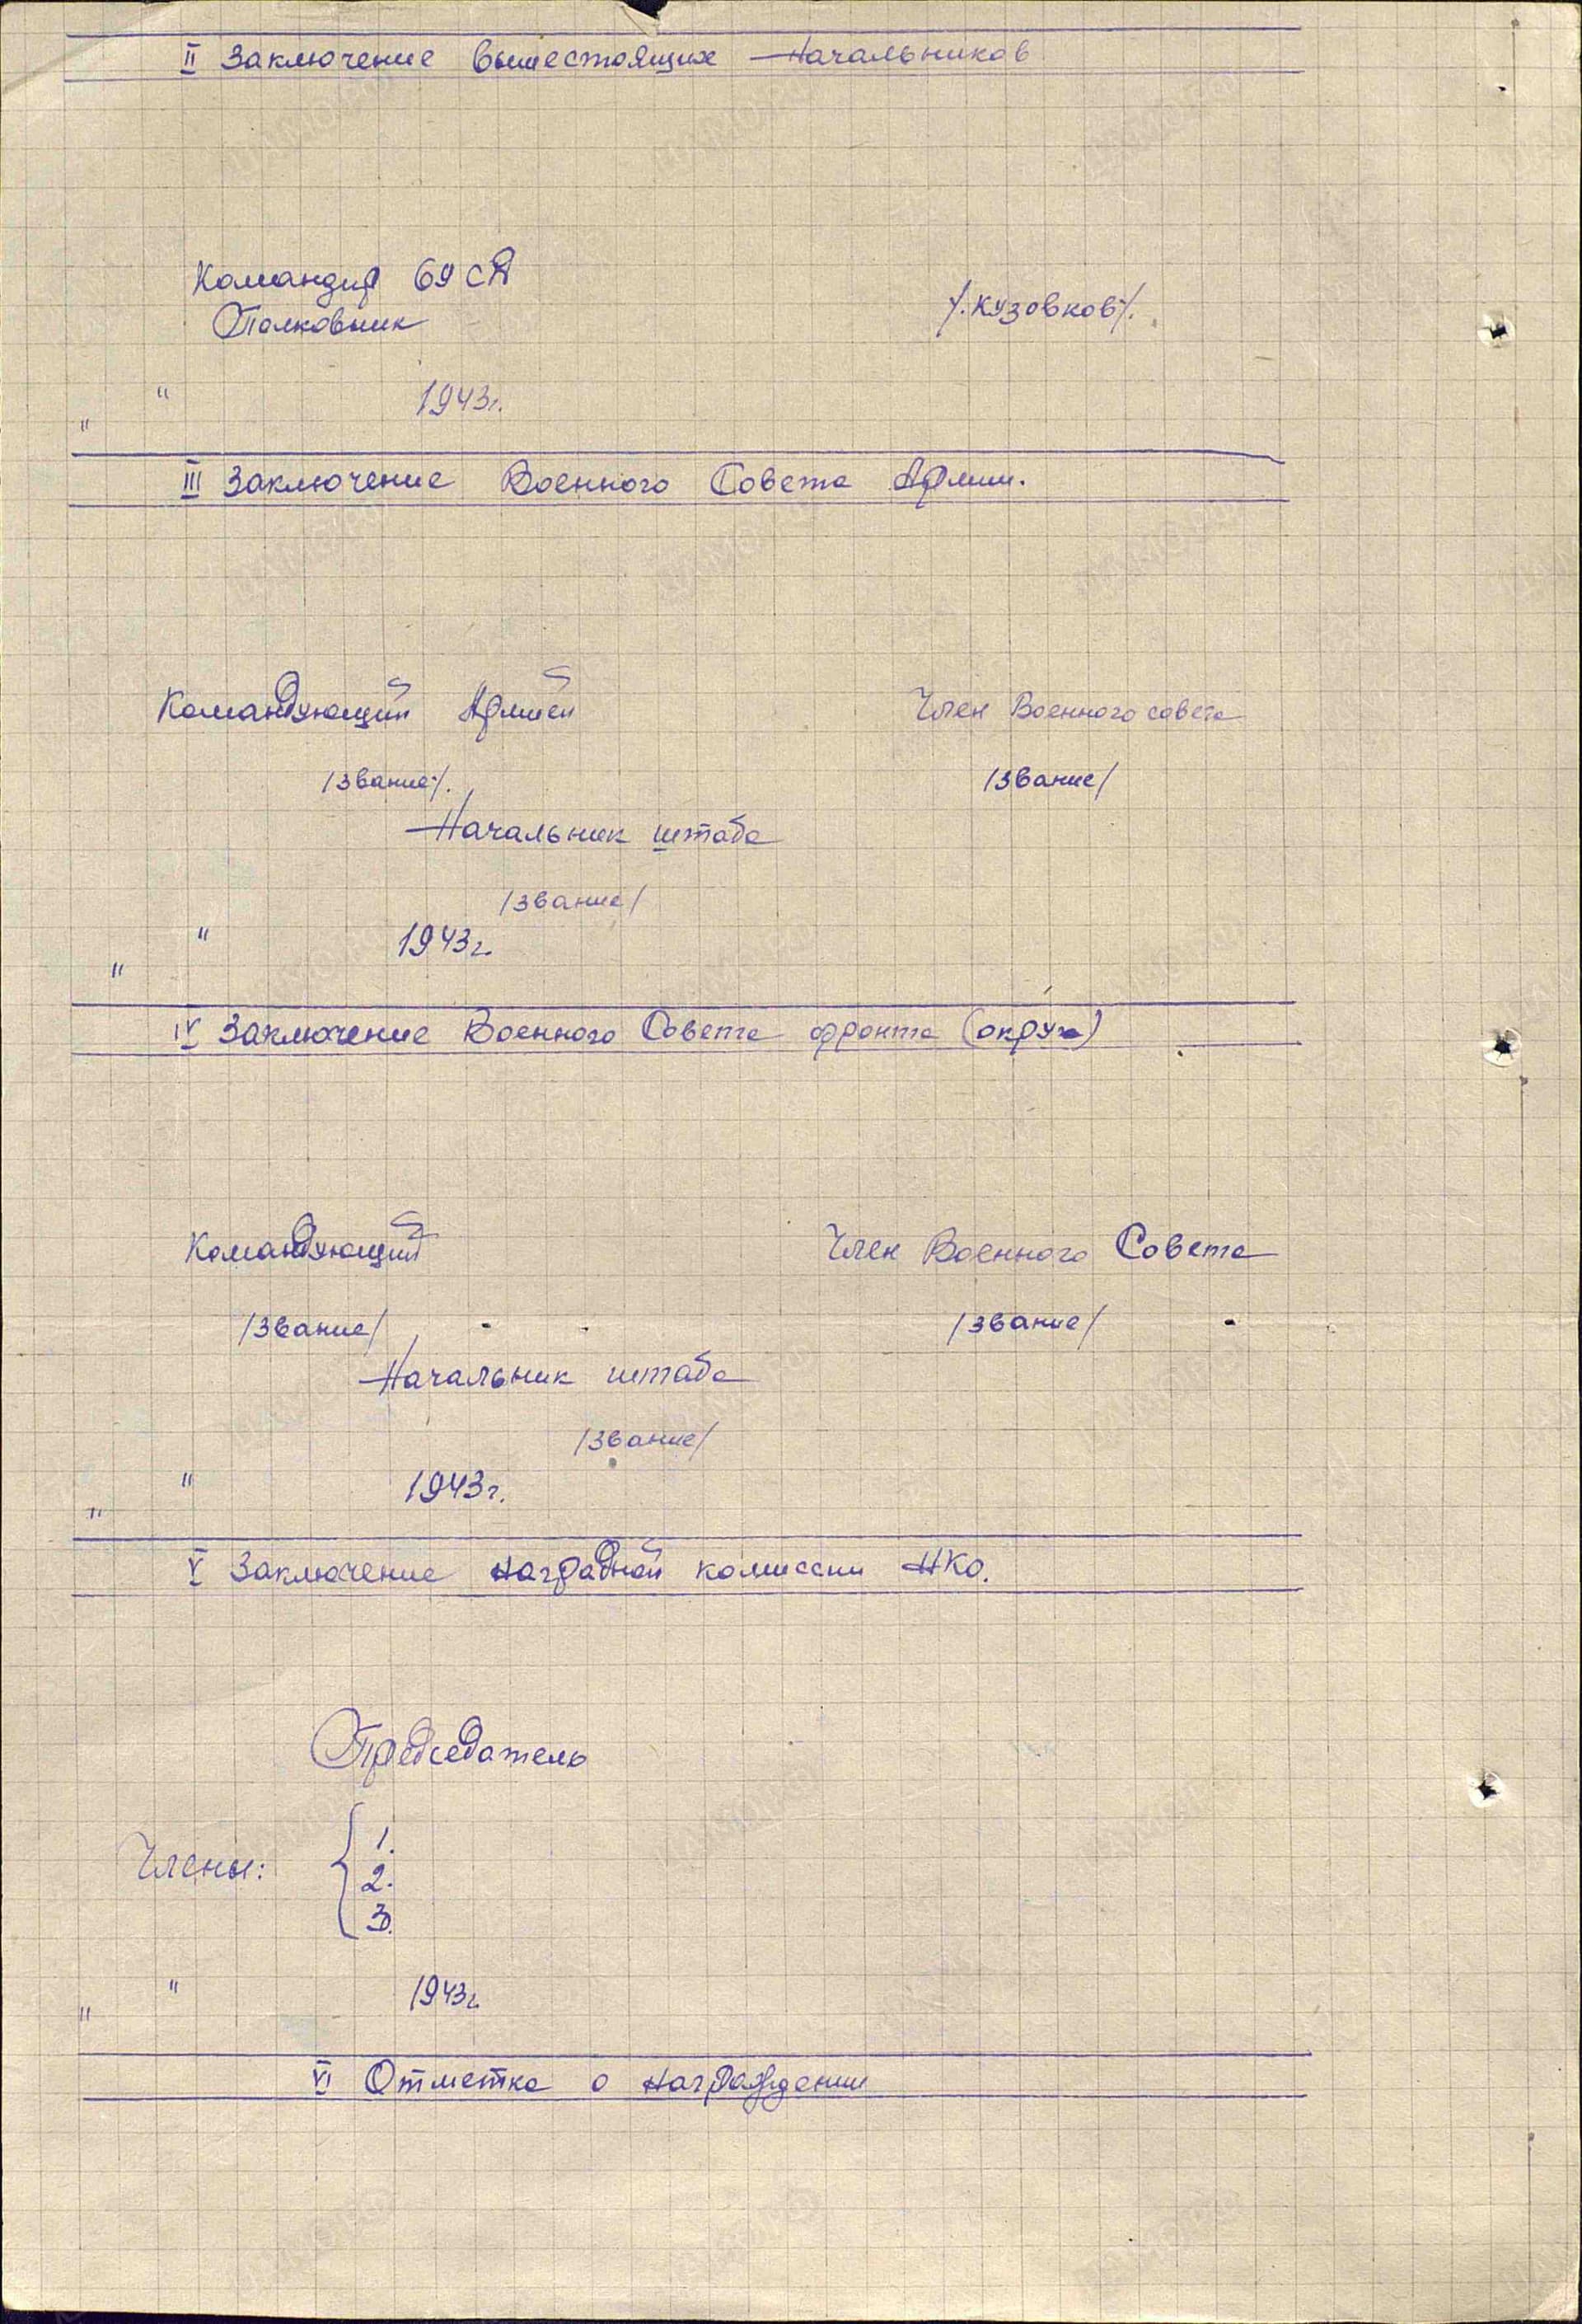 II Заключение вышестоящих Начальников
Командир 69 СД
Полковник /.Кузовков/.
" " 1943г.
III Заключение Военного Совета Армии.
Командующий Армией Член Военного совета
/звание/. /звание/
Начальник штаба
/звание/
" " 1943г.
IV Заключение Военного Совета фронта (округа)
Командующий Член Военного Совета
/звание/ /звание/
Начальник штаба
/звание/
" " 1943г.
V Заключение Наградной комиссии НКО.
Председатель
Члены: 1.
2.
3.
" " 1943г
VI Отметка о награждении